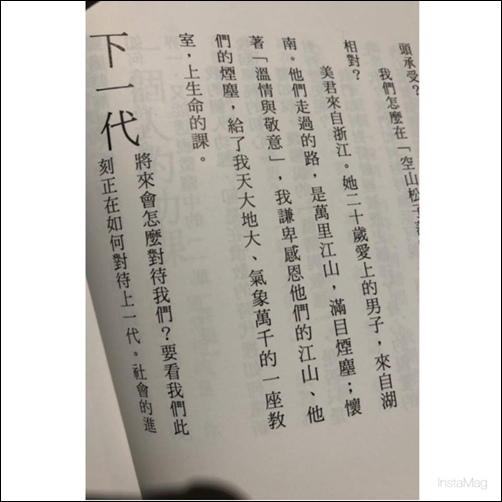 頭承受？
我們怎麼在「空山松子
相對？
美君來自浙江。她二十歲愛上的男子，來自湖
南。他們走過的路，是萬里江山，滿目煙塵；懷
著「溫情與敬意」，我謙卑感恩他們的江山、他
們的煙塵，給了我天大地大、氣象萬千的一座教
室，上生命的課。
下一代
將來會怎麼對待我們？要看我們此
刻正在如何對待上一代。社會的進
InstaMag